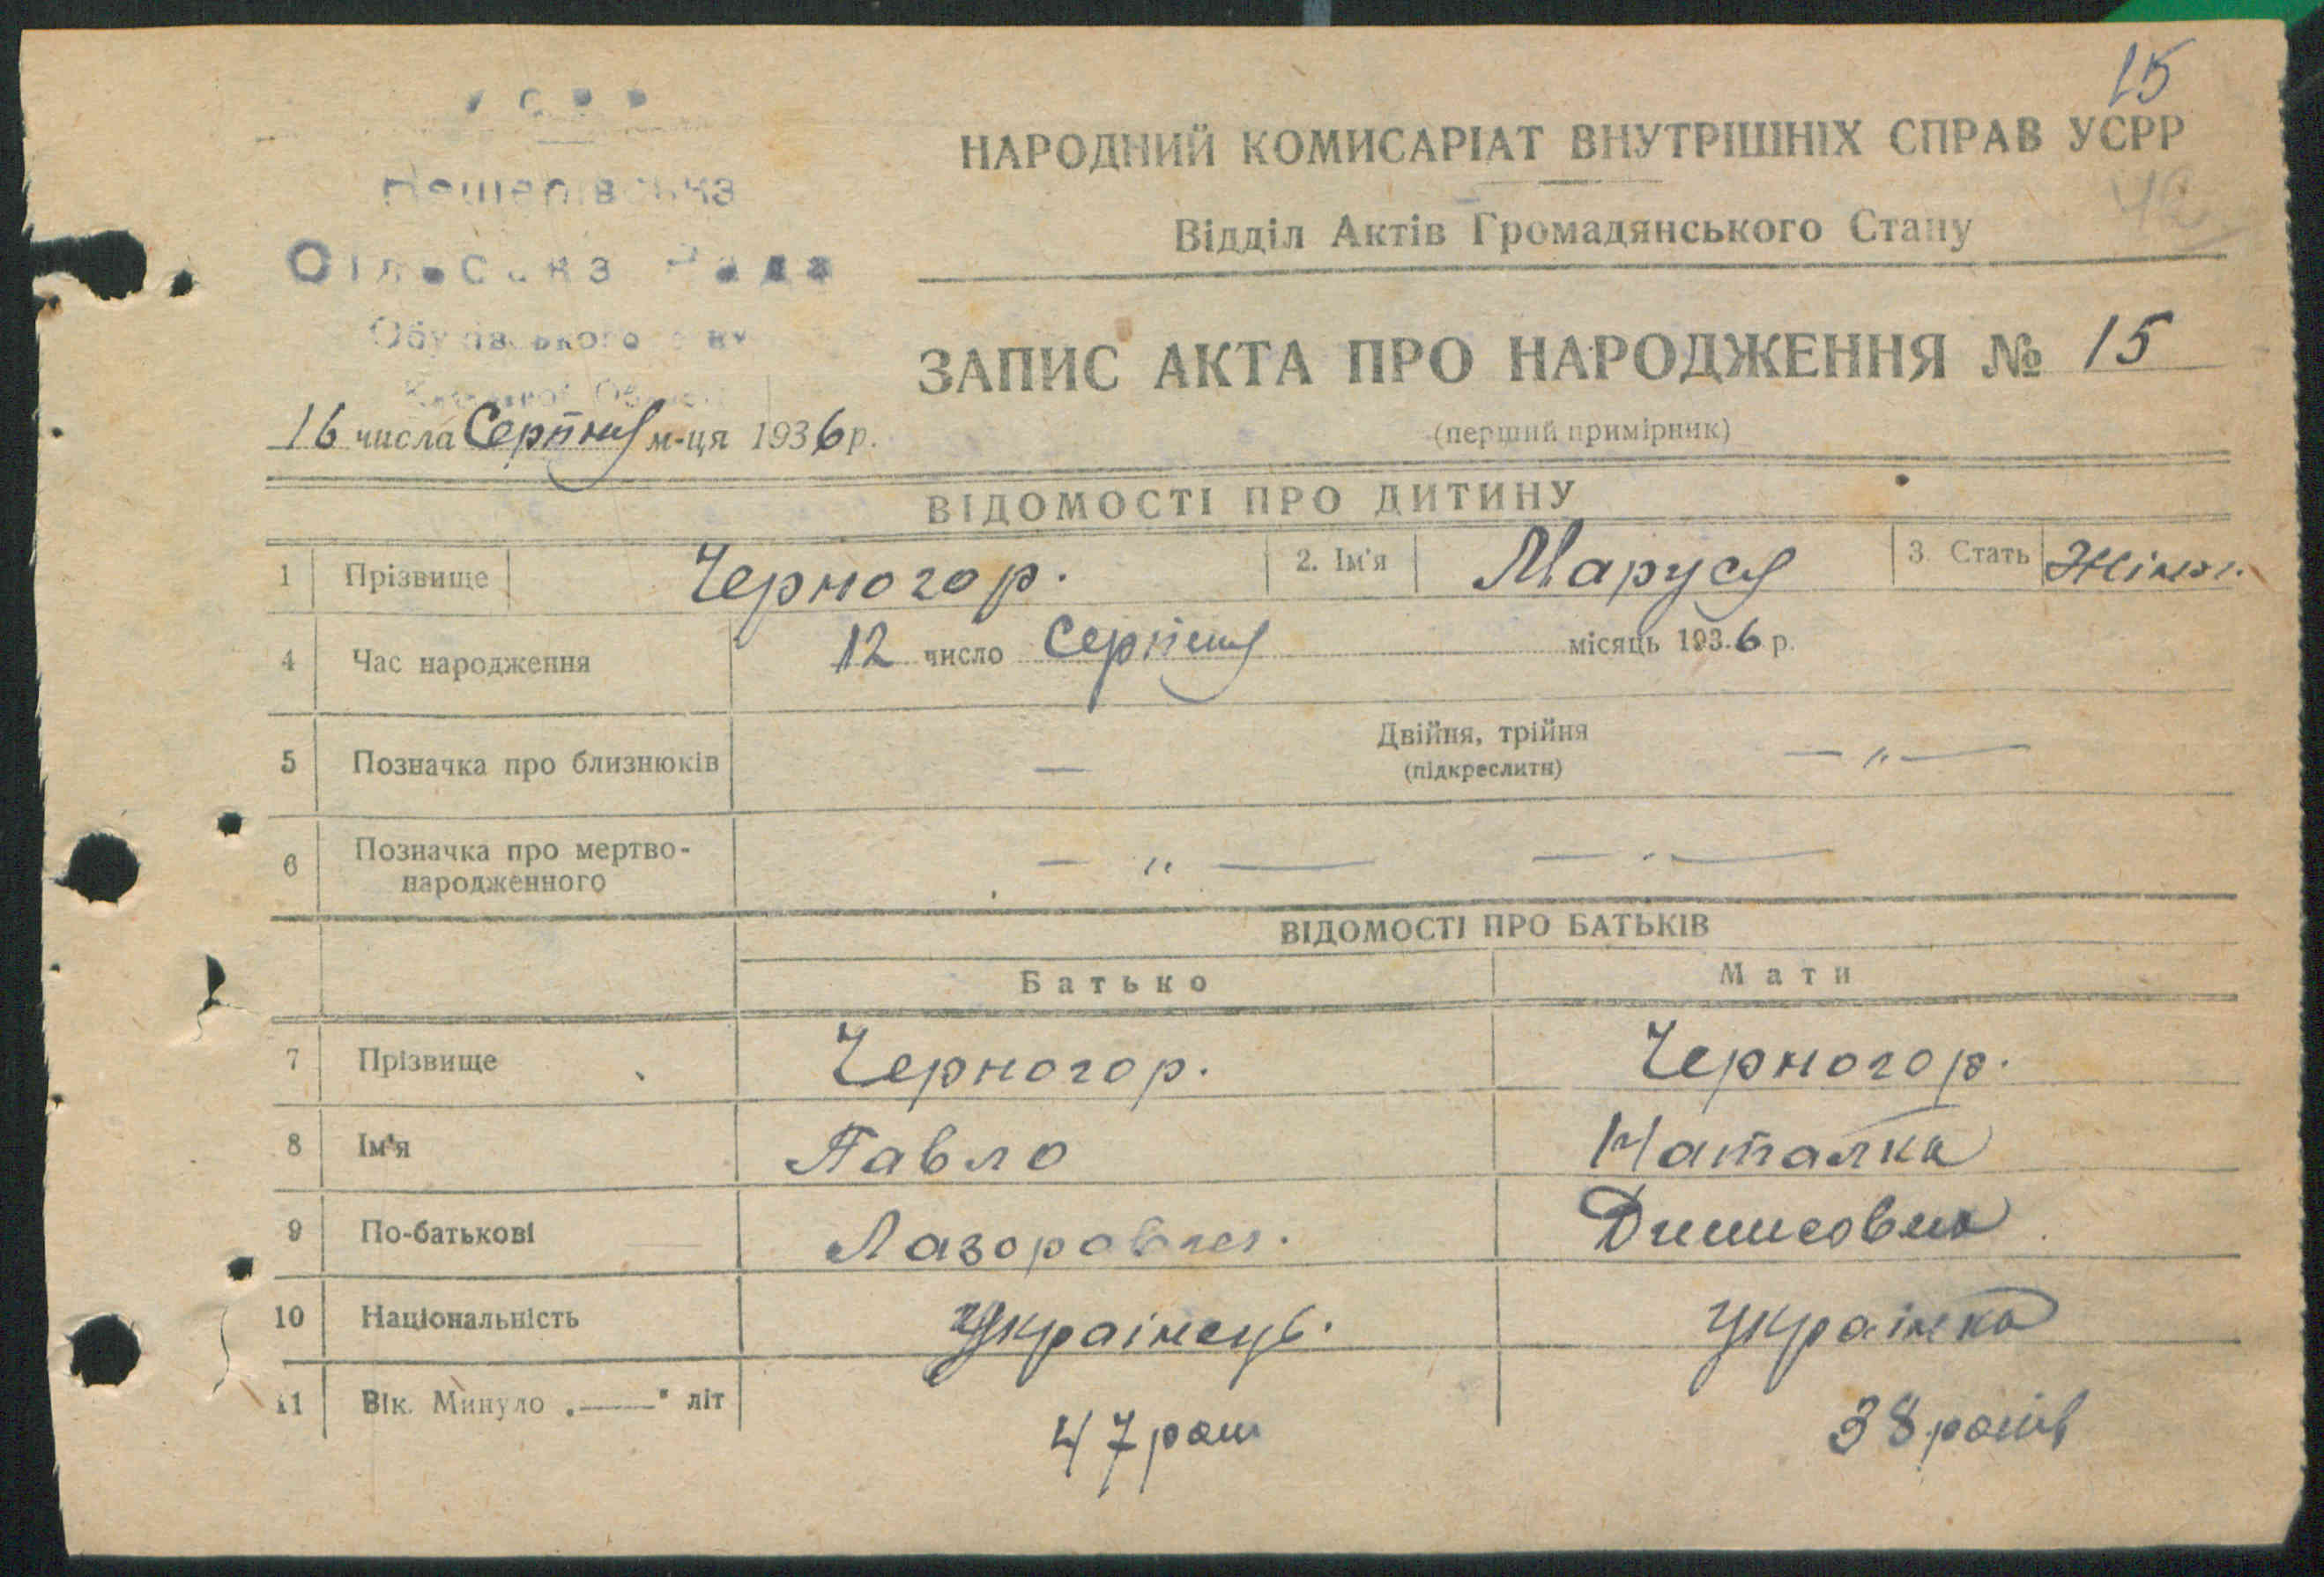 15
УСРР
НАРОДНИЙ КОМИСАРІАТ ВНУТРІШНІХ СПРАВ УСРР
42
Відділ Актів Громадянського Стану
Нещерівська
Сільська Рада
Обухівського р-ну
Київської Області
ЗАПИС АКТА ПРО НАРОДЖЕННЯ № 15
(перший примірник)
16 числа Серпня м-ця 1936 р.
ВІДОМОСТІ ПРО ДИТИНУ
1 Прізвище Черногор. 2. Ім'я Маруся 3. Стать Жіноч.
4 Час народження 12 число Серпня місяць 1936 р.
5 Позначка про близнюків — Двійня, трійня — „ —
(підкреслити)
6 Позначка про мертво-
народженного — „ — — „ —
ВІДОМОСТІ ПРО БАТЬКІВ
Батько Мати
7 Прізвище Черногор. Черногор.
8 Ім'я Павло Наталка
9 По-батькові Лазоров. Динисовна
10 Національність Українець. Українка
11 Вік. Минуло „——" літ 47 рош 38 років